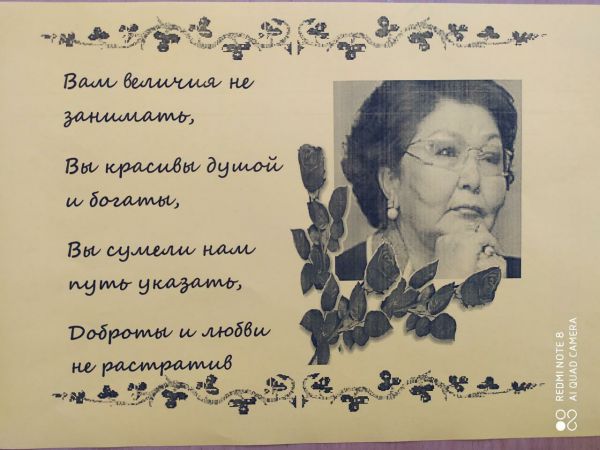 Вам величия не
занимать,
Вы красивы душой
и богаты,
Вы сумели нам
путь указать,
Доброты и любви
не растратив
REDMI NOTE 8
AI QUAD CAMERA